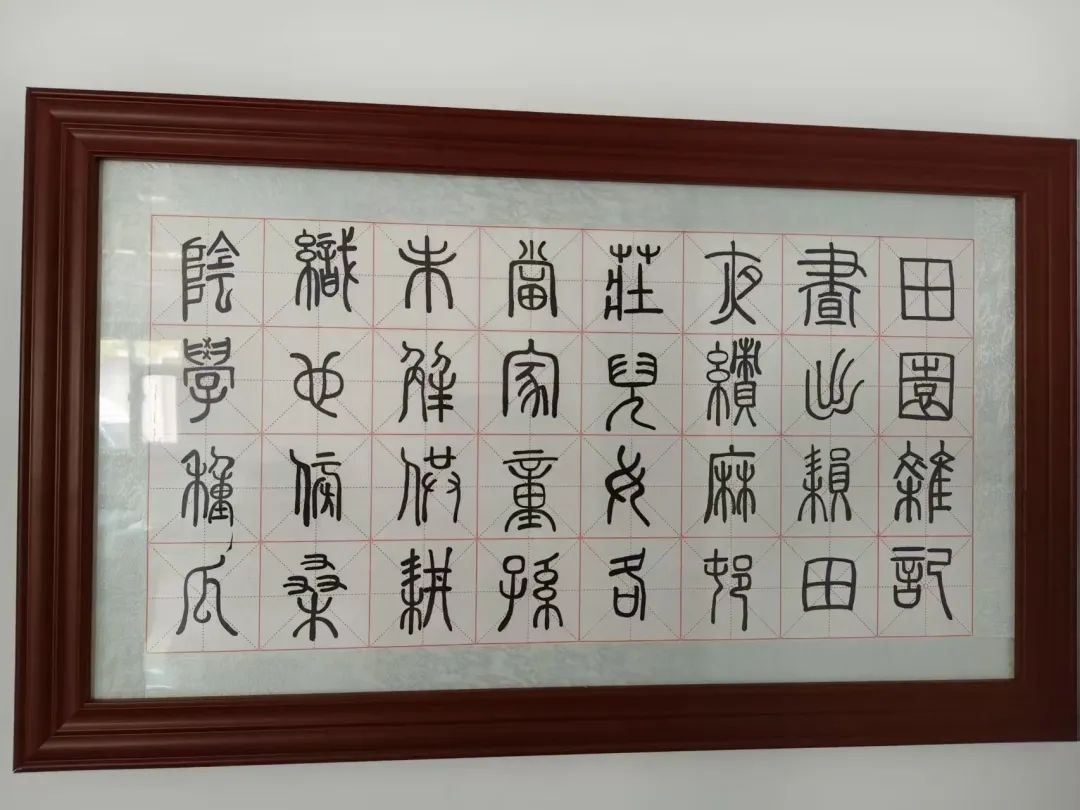 田園雜記
晝出耘田
夜績麻邨
莊兒女各
當家童孫
未解供耕
織也傍桑
陰學種瓜